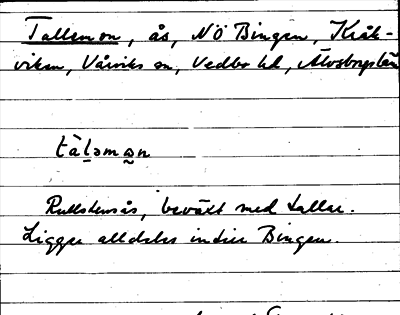 Tallemon, ås, NÖ Bingen, Kråk-
viken, Vårviks sn, Vedbo hd, Älvsborgs län
tàləmon
Rullstensås, beväxt med tallar.
Ligger alldeles intill Bingen.